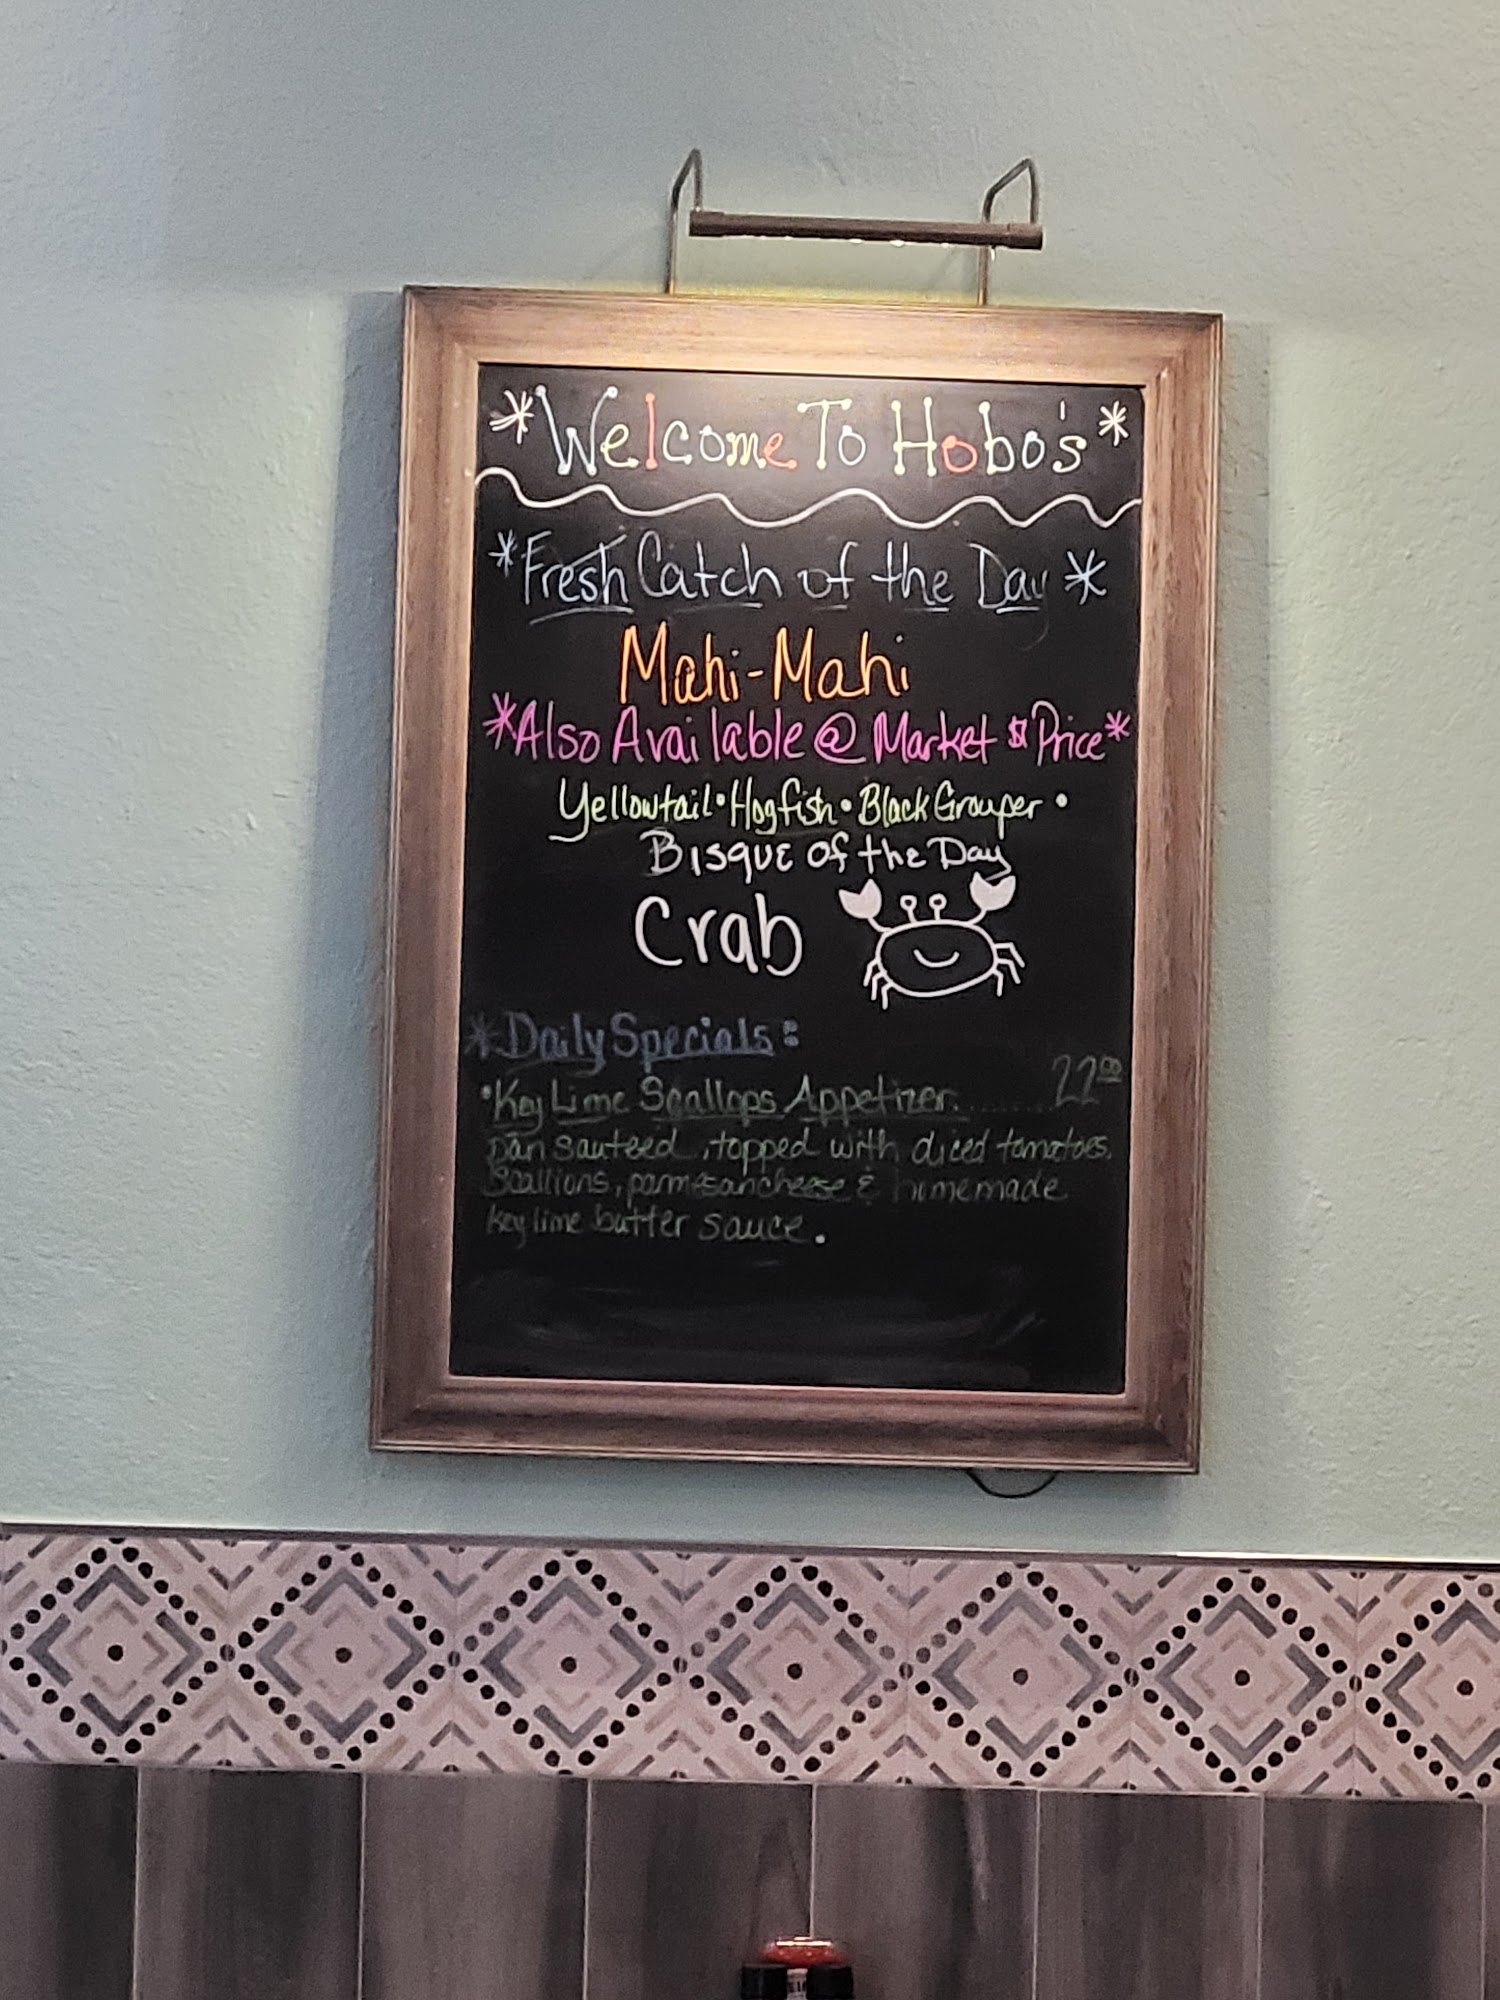 *Welcome To Hobo's*
*Fresh Catch of the Day*
Mahi-Mahi
*Also Available @ Market $ Price*
Yellowtail • Hogfish • Black Grouper •
Bisque of the Day
Crab
*Daily Specials:
• Key Lime Scallops Appetizer......... 22.00
pan sauteed, topped with diced tomatoes,
Scallions, parmesan cheese & homemade
key lime butter sauce.